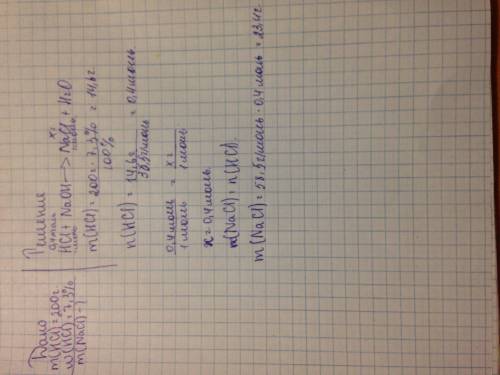 Дано
m(HCl)=200г.
w(HCl)=7,3%
m(NaCl)-?
Решение
0,4 моль x г
HCl + NaOH → NaCl + H2O
1 моль 1 моль
m(HCl) = 200г · 7,3% / 100% = 14,6г
n(HCl) = 14,6г / 36,5г/моль = 0,4 моль
0,4 моль / 1 моль = x г / 1 моль
x = 0,4 моль
n(NaCl) = n(HCl).
m(NaCl) = 58,5г/моль · 0,4 моль = 23,4г